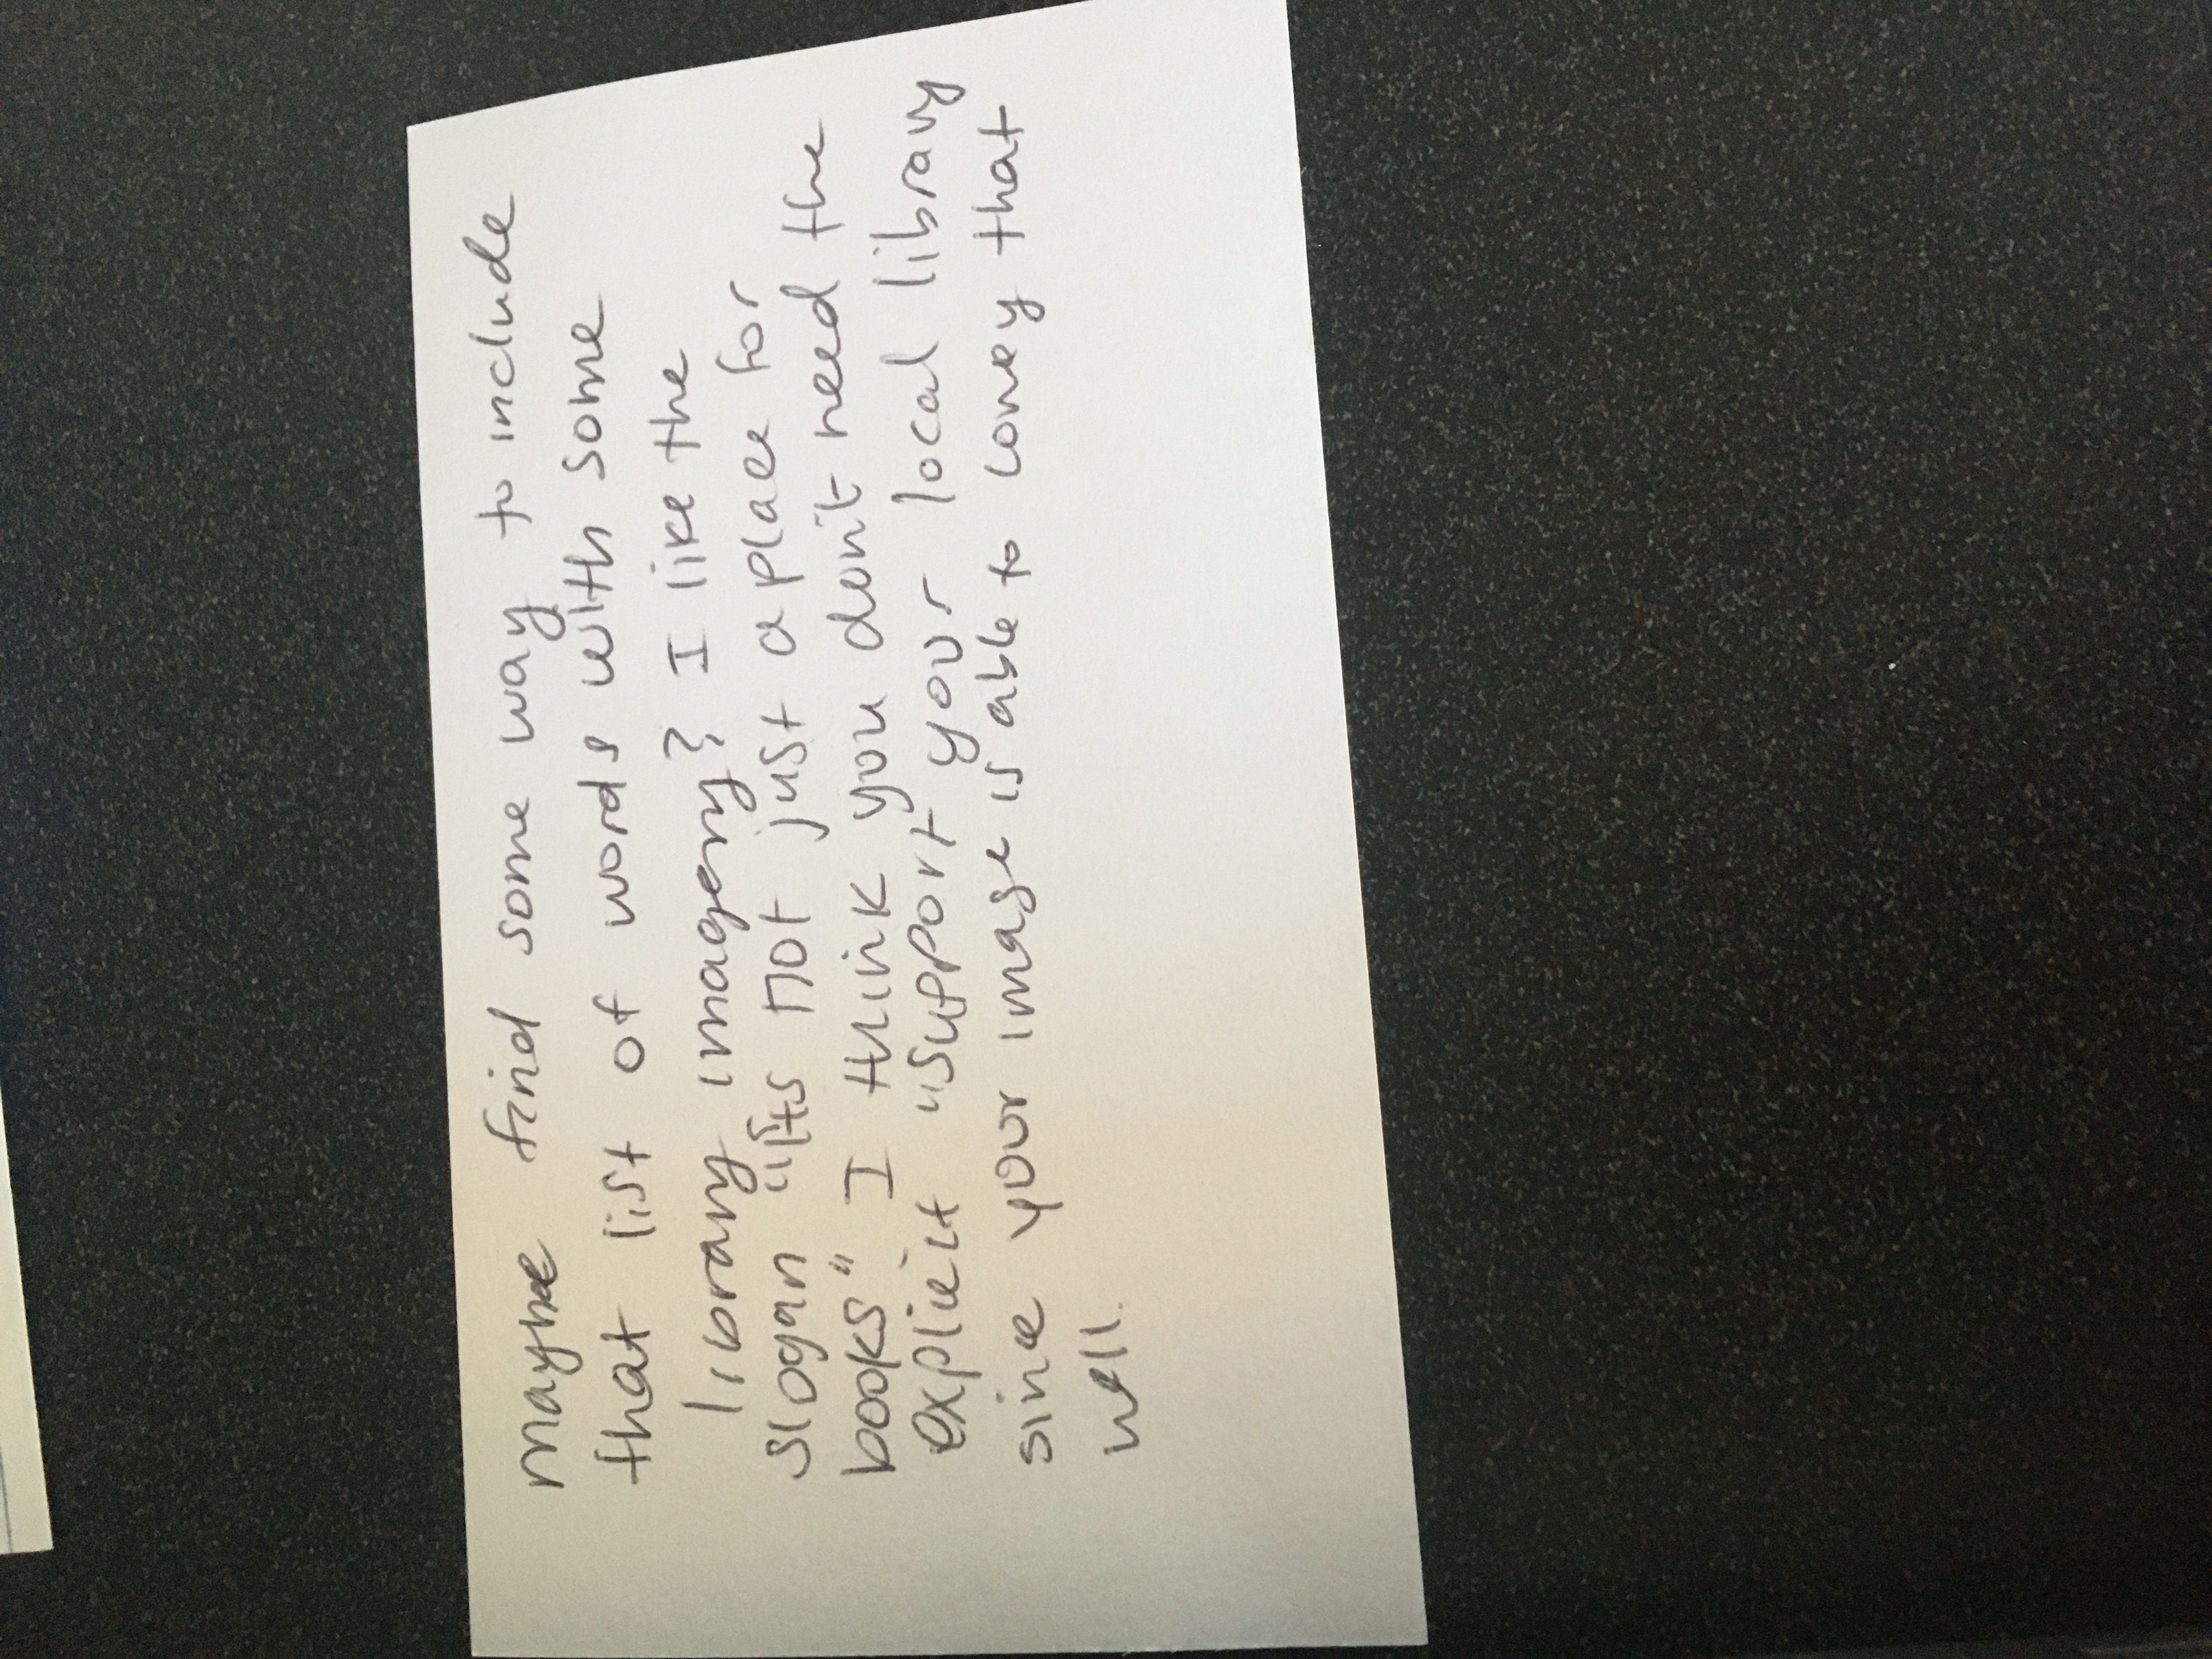 maybe find some way to include
that list of words with some
library imagery? I like the
slogan "Its not just a place for
books". I think you don't need the
explicit "support your local library
since your image is able to convey that
well.